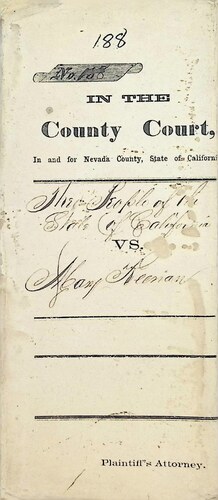 188
No. 188
IN THE
County Court,
In and for Nevada County, State of California
The People of the
State of California
VS.
Mary Keenan
Plaintiff's Attorney.